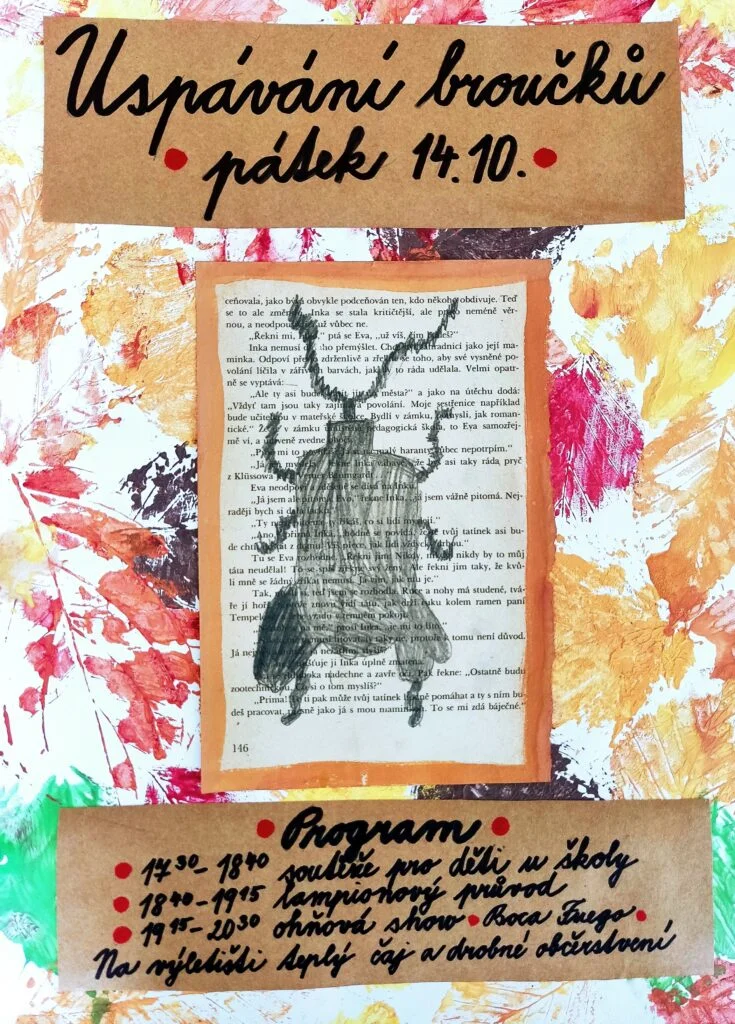 Uspávání broučků
• pátek 14.10. •
ceňovala, jako bývá obvykle podceňován ten, kdo někoho obdivuje. Teď
se to ale změnilo. Inka se stala kritičtější, ale proto neméně věr-
nou, a neodpouští už vůbec ne.
„Řekni mi, ptá se Eva, „už víš, čím budeš?“
Inka nemusí dlouho přemýšlet. Chce zahradnicí jako její ma-
minka. Odpoví přesto zdrželivě a zřetelně toho, aby své vysněné po-
volání líčila v zářivých barvách, jak by to ráda udělala. Velmi opatr-
ně se vyptává:
„Ale ty asi budeš jít města?“ a jako na útěchu dodá:
„Vždyť tam jsou taky zajímavá povolání. Moje sestřenice například
bude učitelkou v mateřské školce. Bydlí v zámku, pomysli, jak roman-
tické.“ v zámku pedagogická škola, to Eva samozřej-
mě ví, a zvedne
mi to malý haranty vůbec nepotrpím.“
„Já my řekne Inka že by asi taky ráda pryč
z Klüssova
Eva neodpoví se dívá na Inku.
„Já jsem ale pitomá, Evo,“ řekne Inka, „já jsem vážně pitomá. Nej-
raději bych si dala
„Ty ne, říkáš, co si lidi myslí.“
„Ano, Inka, „hodně se povídá, že tvůj tatínek asi bu-
de chtít z domu. Víš přece, jak lidi vždycky
Tu se Eva rozhodne. „Řekni jim Nikdy, nikdy by to můj
táta neudělal! To se spíš řekni jim taky, že kvů-
li mně se žádný nemusí. Já vím, jak mu je.“
Tak, teď jsem se rozhodla. Ruce a nohy má studené, tvá-
ře jí hoří znovu u táty, jak drží ruku kolem ramen paní
v temném pokoji.
mě,“ prosí Inka, mi to líto
litovat, taky ne, protože k tomu není důvod.
Já nejsem myslíš.“
jí Inka úplně zmatena.
nadechne a zavře oči. Pak řekne: „Ostatně budu
zootechničkou. Co si o tom myslíš?“
„Prima! To ti pak může tvůj tatínek hodně pomáhat a ty s ním bu-
deš pracovat, přesně jako já s mou maminkou. To se mi zdá báječné.“
146
• Program •
• 17³⁰ - 18⁴⁰ soutěže pro děti u školy
• 18⁴⁰ - 19¹⁵ lampionový průvod
• 19¹⁵ - 20³⁰ ohňová show • Boca Fuego •
Na výletišti teplý čaj a drobné občerstvení